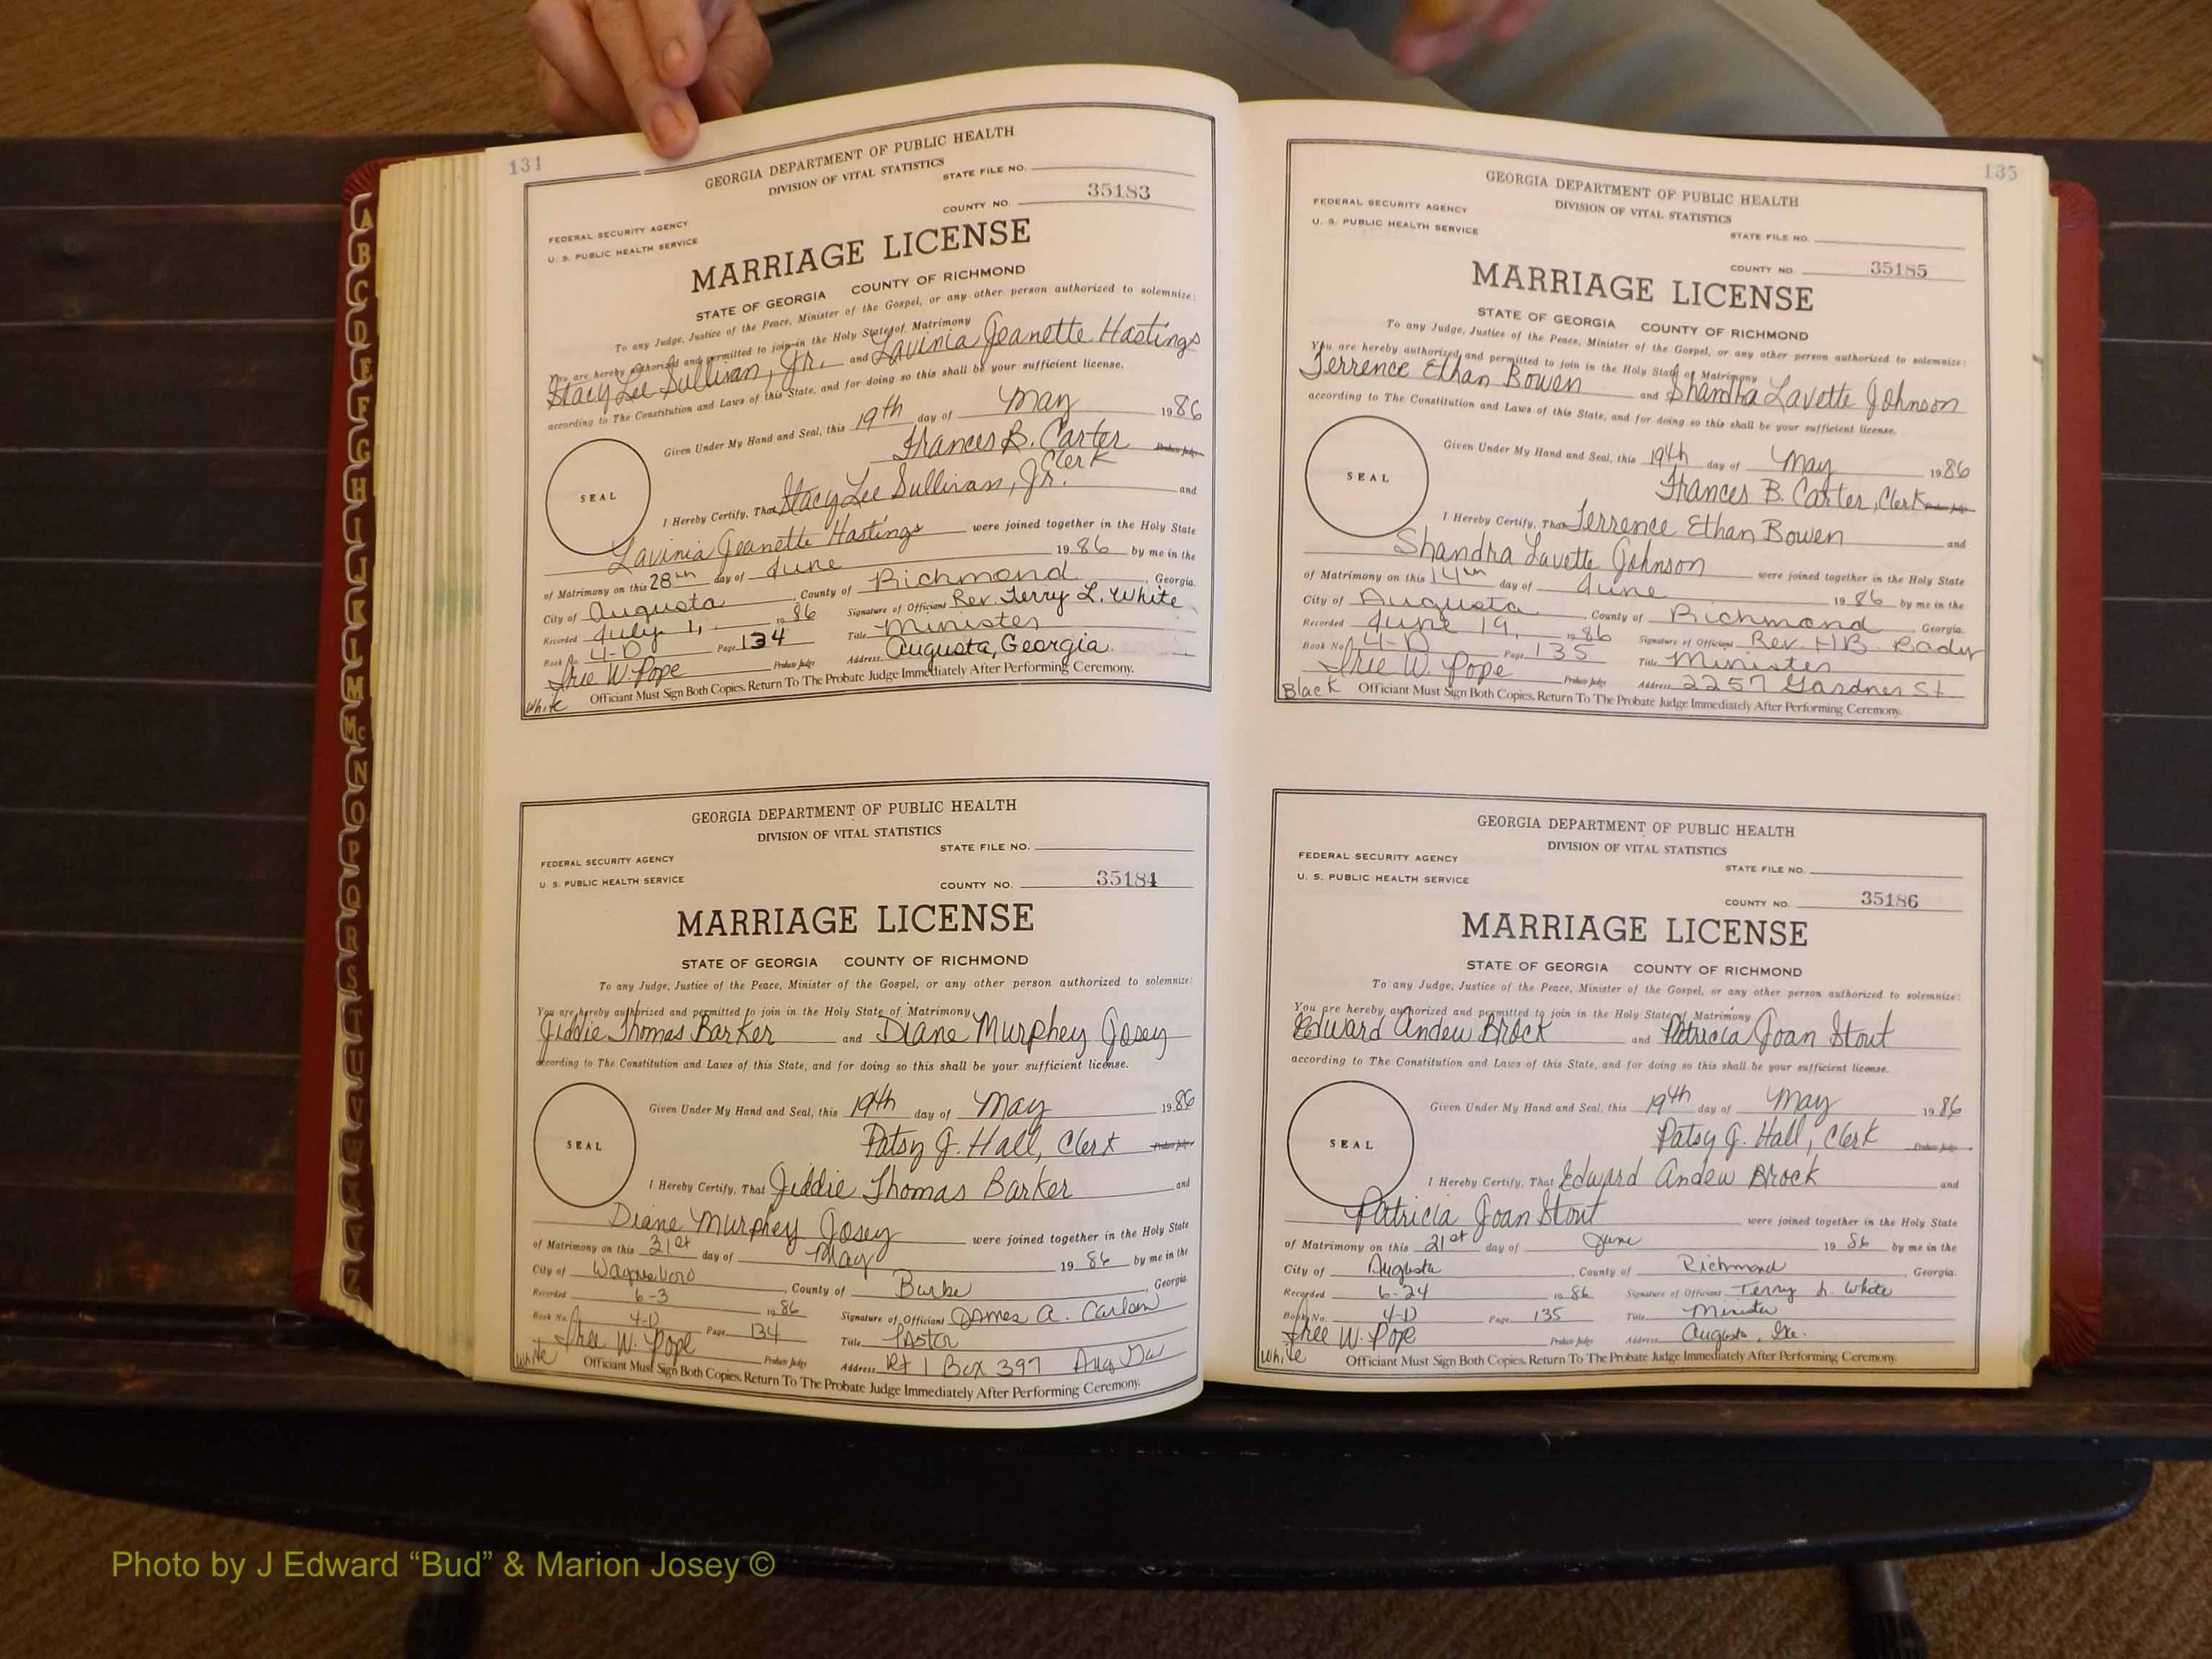 134
GEORGIA DEPARTMENT OF PUBLIC HEALTH
DIVISION OF VITAL STATISTICS
STATE FILE NO.
COUNTY NO. 35183
FEDERAL SECURITY AGENCY
U. S. PUBLIC HEALTH SERVICE
MARRIAGE LICENSE
STATE OF GEORGIA COUNTY OF RICHMOND
To any Judge, Justice of the Peace, Minister of the Gospel, or any other person authorized to solemnize:
You are hereby authorized and permitted to join in the Holy State of Matrimony
Stacy Lee Sullivan, Jr. and Lavinia Jeanette Hastings
according to The Constitution and Laws of this State, and for doing so this shall be your sufficient license.
Given Under My Hand and Seal, this 19th day of May 1986
Frances B. Carter Probate Judge
Clerk
SEAL
I Hereby Certify, That Stacy Lee Sullivan, Jr. and
Lavinia Jeanette Hastings were joined together in the Holy State
of Matrimony on this 28th day of June 1986 by me in the
City of Augusta, County of Richmond, Georgia.
Recorded July 1, 1986 Signature of Officiant Rev. Terry L. White
Book No. 4-D Page 134 Title Minister
Iree W. Pope Probate Judge Address Augusta, Georgia
White Officiant Must Sign Both Copies. Return To The Probate Judge Immediately After Performing Ceremony.
GEORGIA DEPARTMENT OF PUBLIC HEALTH
DIVISION OF VITAL STATISTICS
STATE FILE NO.
FEDERAL SECURITY AGENCY
U. S. PUBLIC HEALTH SERVICE
COUNTY NO. 35184
MARRIAGE LICENSE
STATE OF GEORGIA COUNTY OF RICHMOND
To any Judge, Justice of the Peace, Minister of the Gospel, or any other person authorized to solemnize:
You are hereby authorized and permitted to join in the Holy State of Matrimony
Jiddie Thomas Barker and Diane Murphey Josey
according to The Constitution and Laws of this State, and for doing so this shall be your sufficient license.
Given Under My Hand and Seal, this 19th day of May 1986
Patsy J. Hall, Clerk Probate Judge
SEAL
I Hereby Certify, That Jiddie Thomas Barker and
Diane Murphey Josey were joined together in the Holy State
of Matrimony on this 31st day of May 1986 by me in the
City of Waynesboro, County of Burke, Georgia.
Recorded 6-3 1986 Signature of Officiant James A. Carlan
Book No. 4-D Page 134 Title Pastor
Iree W. Pope Probate Judge Address Rt 1 Box 397 Aug Ga
White Officiant Must Sign Both Copies. Return To The Probate Judge Immediately After Performing Ceremony.
135
GEORGIA DEPARTMENT OF PUBLIC HEALTH
DIVISION OF VITAL STATISTICS
FEDERAL SECURITY AGENCY
U. S. PUBLIC HEALTH SERVICE
STATE FILE NO.
COUNTY NO. 35185
MARRIAGE LICENSE
STATE OF GEORGIA COUNTY OF RICHMOND
To any Judge, Justice of the Peace, Minister of the Gospel, or any other person authorized to solemnize:
You are hereby authorized and permitted to join in the Holy State of Matrimony
Terrence Ethan Bowen and Shandra Lavette Johnson
according to The Constitution and Laws of this State, and for doing so this shall be your sufficient license.
Given Under My Hand and Seal, this 19th day of May 1986
Frances B. Carter, Clerk Probate Judge
SEAL
I Hereby Certify, That Terrence Ethan Bowen and
Shandra Lavette Johnson were joined together in the Holy State
of Matrimony on this 14th day of June 1986 by me in the
City of Augusta, County of Richmond Georgia.
Recorded June 19, 1986 Signature of Officiant Rev. H.B. Eady
Book No. 4-D Page 135 Title Minister
Iree W. Pope Probate Judge Address 2257 Gardner St
Black Officiant Must Sign Both Copies. Return To The Probate Judge Immediately After Performing Ceremony.
GEORGIA DEPARTMENT OF PUBLIC HEALTH
DIVISION OF VITAL STATISTICS
FEDERAL SECURITY AGENCY
U. S. PUBLIC HEALTH SERVICE
STATE FILE NO.
COUNTY NO. 35186
MARRIAGE LICENSE
STATE OF GEORGIA COUNTY OF RICHMOND
To any Judge, Justice of the Peace, Minister of the Gospel, or any other person authorized to solemnize:
You are hereby authorized and permitted to join in the Holy State of Matrimony
Edward Andew Brock and Patricia Joan Stout
according to The Constitution and Laws of this State, and for doing so this shall be your sufficient license.
Given Under My Hand and Seal, this 19th day of May 1986
Patsy J. Hall, Clerk Probate Judge
SEAL
I Hereby Certify, That Edward Andew Brock and
Patricia Joan Stout were joined together in the Holy State
of Matrimony on this 21st day of June 1986 by me in the
City of Augusta, County of Richmond, Georgia.
Recorded 6-24 1986 Signature of Officiant Terry L. White
Book No. 4-D Page 135 Title Minister
Iree W. Pope Probate Judge Address Augusta, Ga.
White Officiant Must Sign Both Copies. Return To The Probate Judge Immediately After Performing Ceremony.
A
B
C
D
E
F
G
H
I
J
K
L
M
Mc
N
O
P
Q
R
S
T
U
V
W
X
Y
Z
Photo by J Edward “Bud” & Marion Josey ©